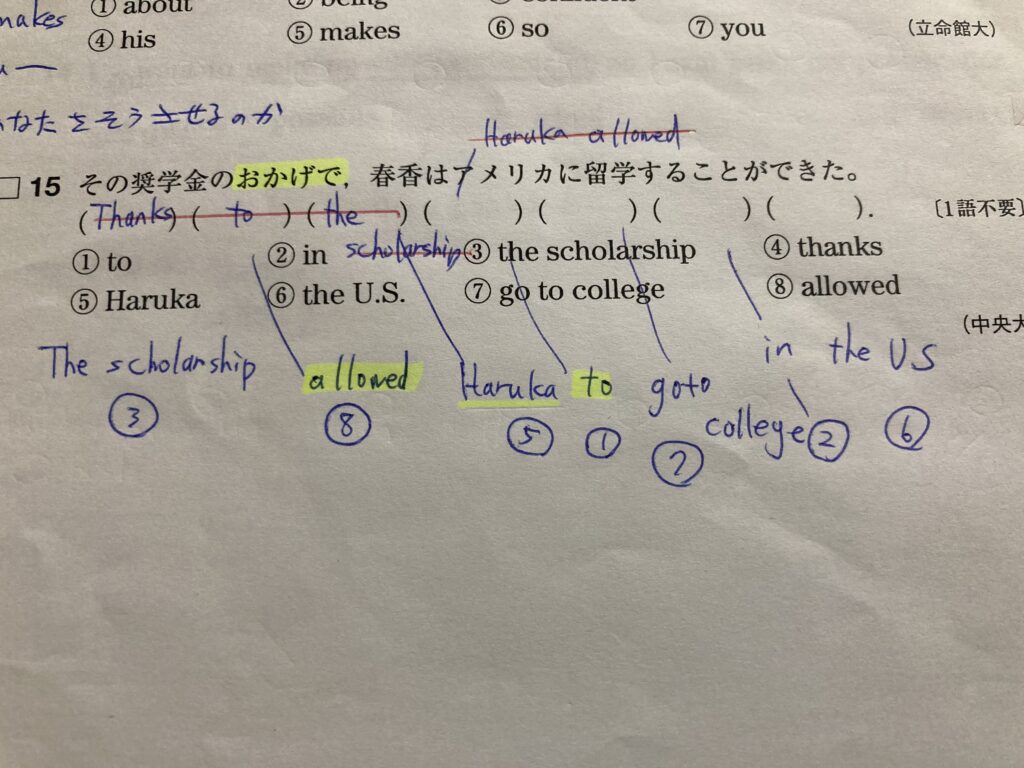 makes ① about
④ his ⑤ makes ⑥ so ⑦ you (立命館大)
なたをそうさせるのか
Haruka allowed
15 その奨学金のおかげで，春香はアメリカに留学することができた。
(Thanks) ( to ) ( the ) ( ) ( ) ( ) ( ). 〔1語不要〕
① to ② in scholarship ③ the scholarship ④ thanks
⑤ Haruka ⑥ the U.S. ⑦ go to college ⑧ allowed
(中央大
The scholarship allowed Haruka to go to college in the US
③ ⑧ ⑤ ① ⑦ ② ⑥